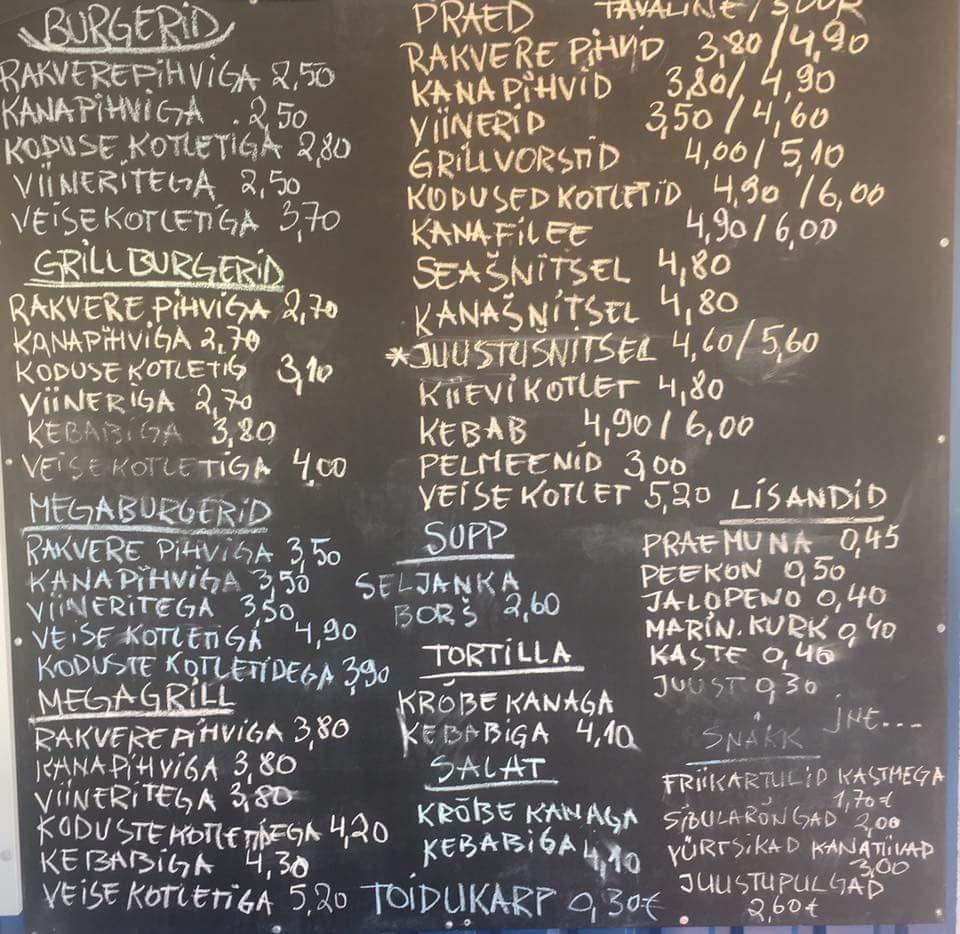 BURGERID
RAKVERE PIHVIGA 2,50
KANAPIHVIGA 2,50
KODUSE KOTLETIGA 2,80
VIINERITEGA 2,50
VEISEKOTLETIGA 3,70
GRILLBURGERID
RAKVERE PIHVIGA 2,70
KANAPIHVIGA 2,70
KODUSE KOTLETIG 3,10
VIINERIGA 2,70
KEBABIGA 3,80
VEISE KOTLETIGA 4,00
MEGABURGERID
RAKVERE PIHVIGA 3,50
KANAPIHVIGA 3,50
VIINERITEGA 3,50
VEISE KOTLETIGA 4,90
KODUSTE KOTLETIDEGA 3,90
MEGAGRILL
RAKVERE PIHVIGA 3,80
KANAPIHVIGA 3,80
VIINERITEGA 3,80
KODUSTE KOTLETIDEGA 4,20
KEBABIGA 4,30
VEISE KOTLETIGA 5,20
PRAED TAVALINE/SUUR
RAKVERE PIHVID 3,80/4,90
KANAPIHVID 3,80/4,90
VIINERID 3,50/4,60
GRILLVORSTID 4,00/5,10
KODUSED KOTLETID 4,90/6,00
KANAFILEE 4,90/6,00
SEAŠNITSEL 4,80
KANAŠNITSEL 4,80
*JUUSTUŠNITSEL 4,60/5,60
KIIEVI KOTLET 4,80
KEBAB 4,90/6,00
PELMEENID 3,00
VEISE KOTLET 5,20
SUPP
SELJANKA
BORŠ 2,60
TORTILLA
KRÕBE KANAGA
KEBABIGA 4,10
SALAT
KRÕBE KANAGA
KEBABIGA 4,10
TOIDUKARP 0,30€
LISANDID
PRAEMUNA 0,45
PEEKON 0,50
JALOPENO 0,40
MARIN.KURK 0,40
KASTE 0,40
JUUST 0,30
JNE....
SNÄKK
FRIIKARTULID KASTMEGA
1,70€
SIBULARÕNGAD 2,00
VÜRTSIKAD KANATIIVAD
3,00
JUUSTUPULGAD
2,60€